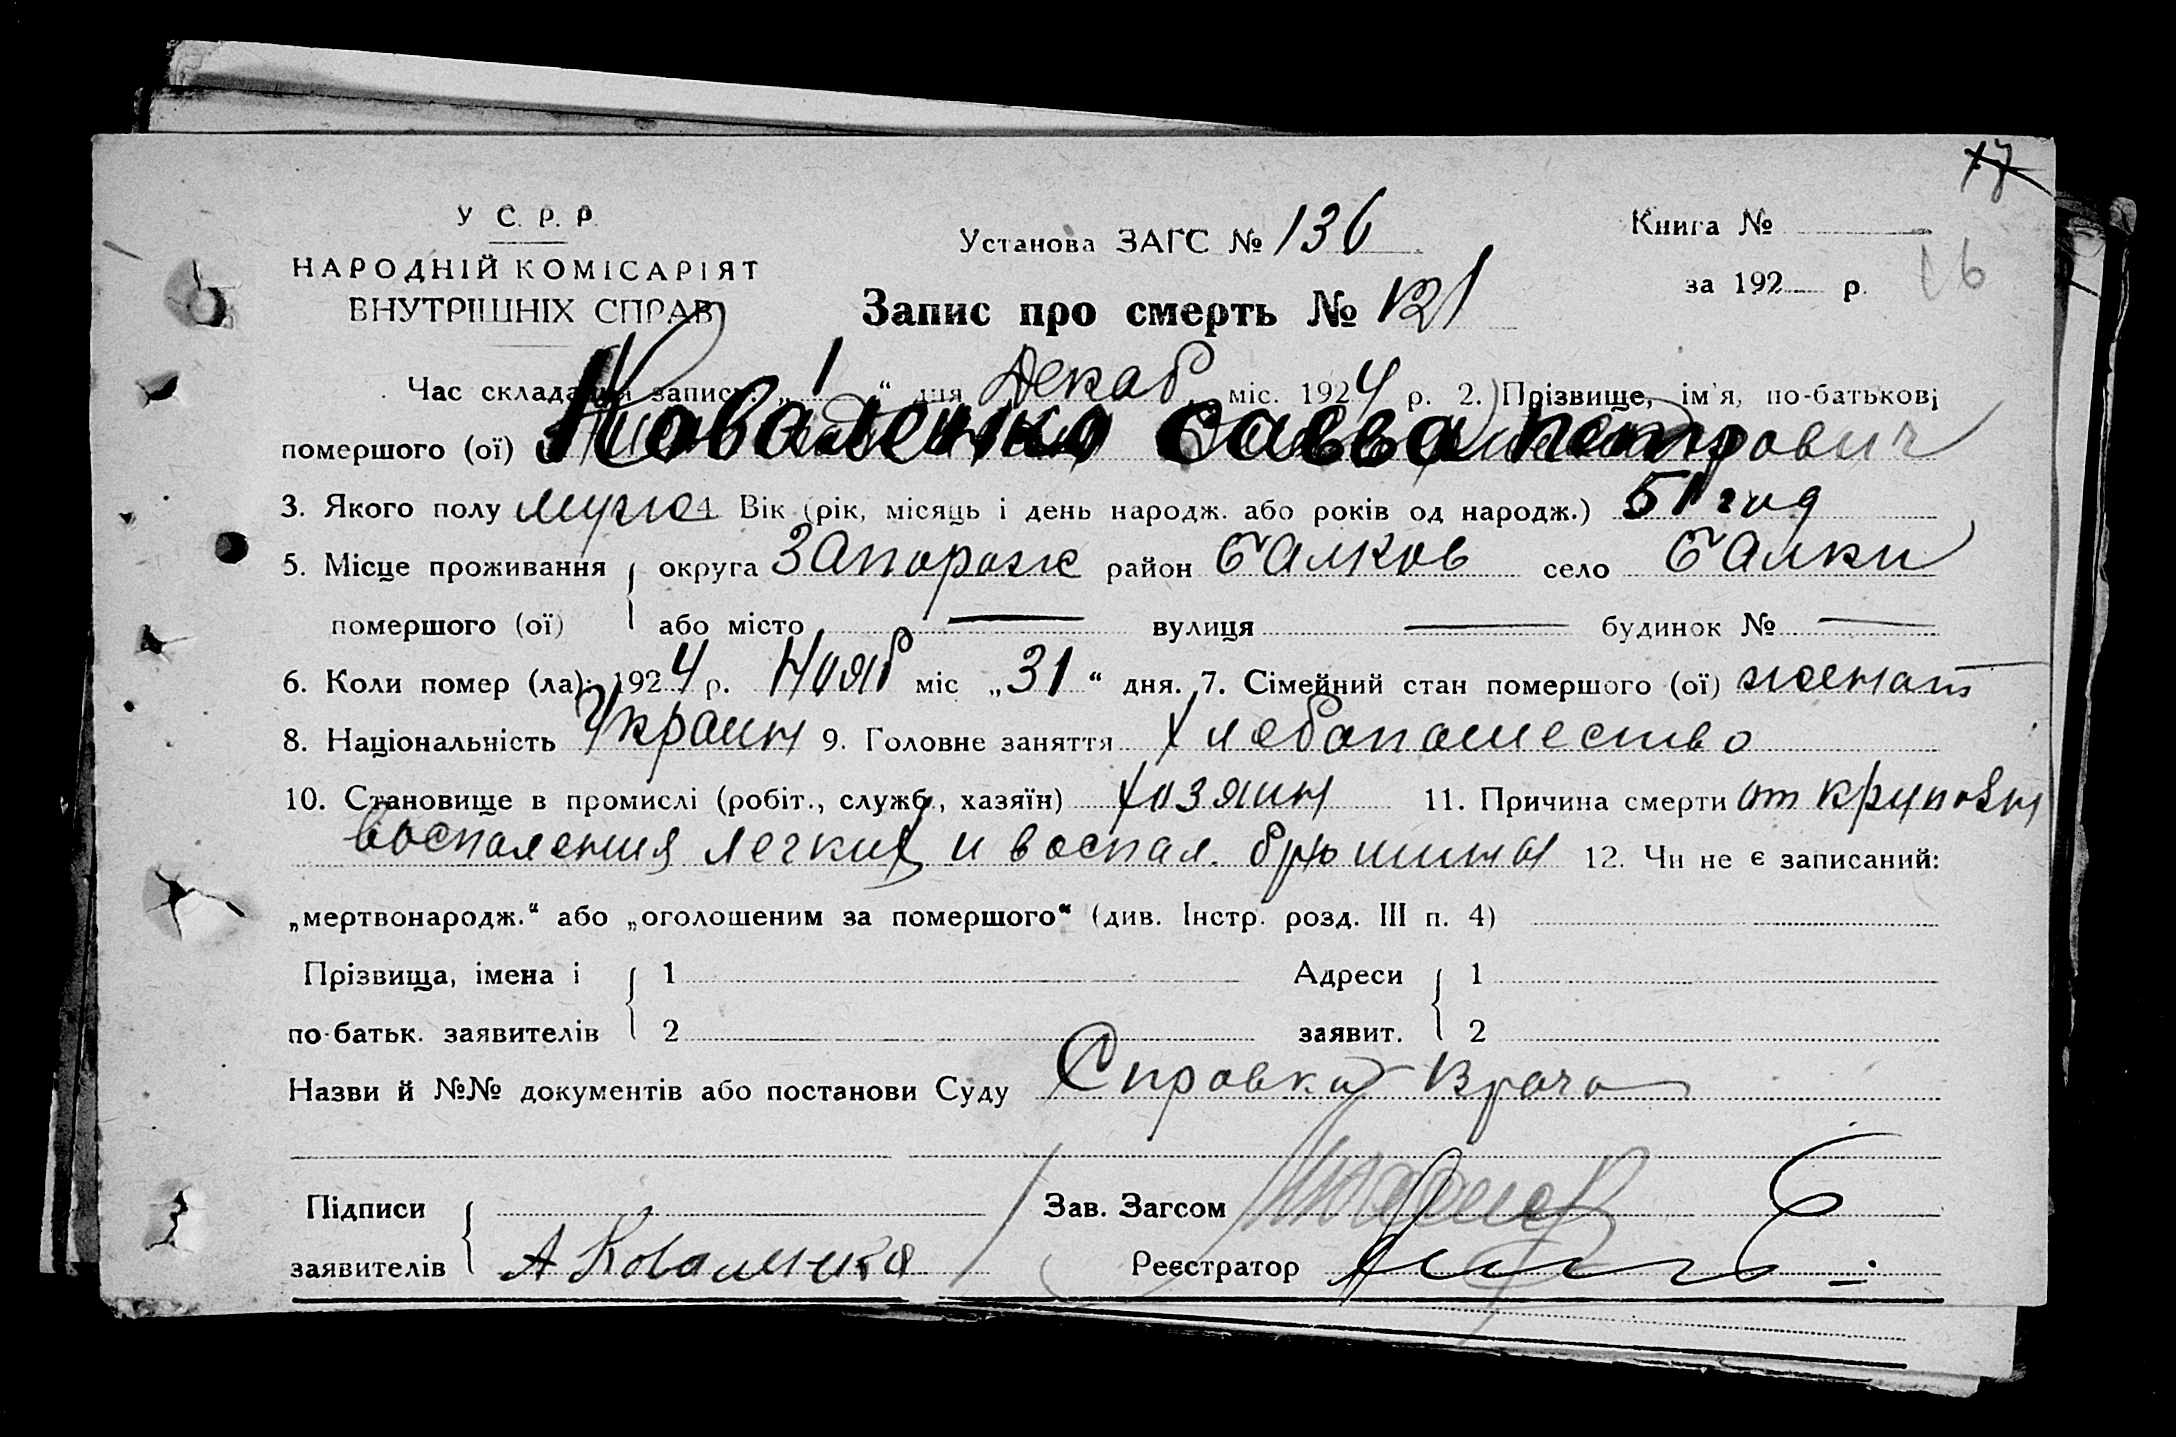 17
У С. Р. Р.
НАРОДНІЙ КОМІСАРІЯТ
ВНУТРІШНІХ СПРАВ
Установа ЗАГС № 136
Книга №
за 192 р.
16
Запис про смерть № 121
Час складання запису: „1“ дня Декаб міс. 1924 р. 2. Прізвище, ім'я, по-батькові
помершого (ої) Коваленко Савва Петрович
3. Якого полу муж 4 Вік (рік, місяць і день народж. або років од народж.) 51 год
5. Місце проживання округа Запорож район Балков село Балки
помершого (ої) або місто — вулиця — будинок № —
6. Коли помер (ла): 1924 р. Нояб міс „31“ дня. 7. Сімейний стан помершого (ої) женат
8. Національність Украин 9. Головне заняття Хлебопашество
10. Становище в промислі (робіт., служб., хазяїн) хозяин 11. Причина смерти от крупозн
воспаления легких и воспал. брюшины 12. Чи не є записаний:
„мертвонародж.“ або „оголошеним за помершого“ (див. Інстр. розд. III п. 4)
Прізвища, імена і 1 Адреси 1
по-батьк. заявителів 2 заявит. 2
Назви й №№ документів або постанови Суду Справка Врача
Підписи Зав. Загсом
заявителів А Коваленко Реєстратор